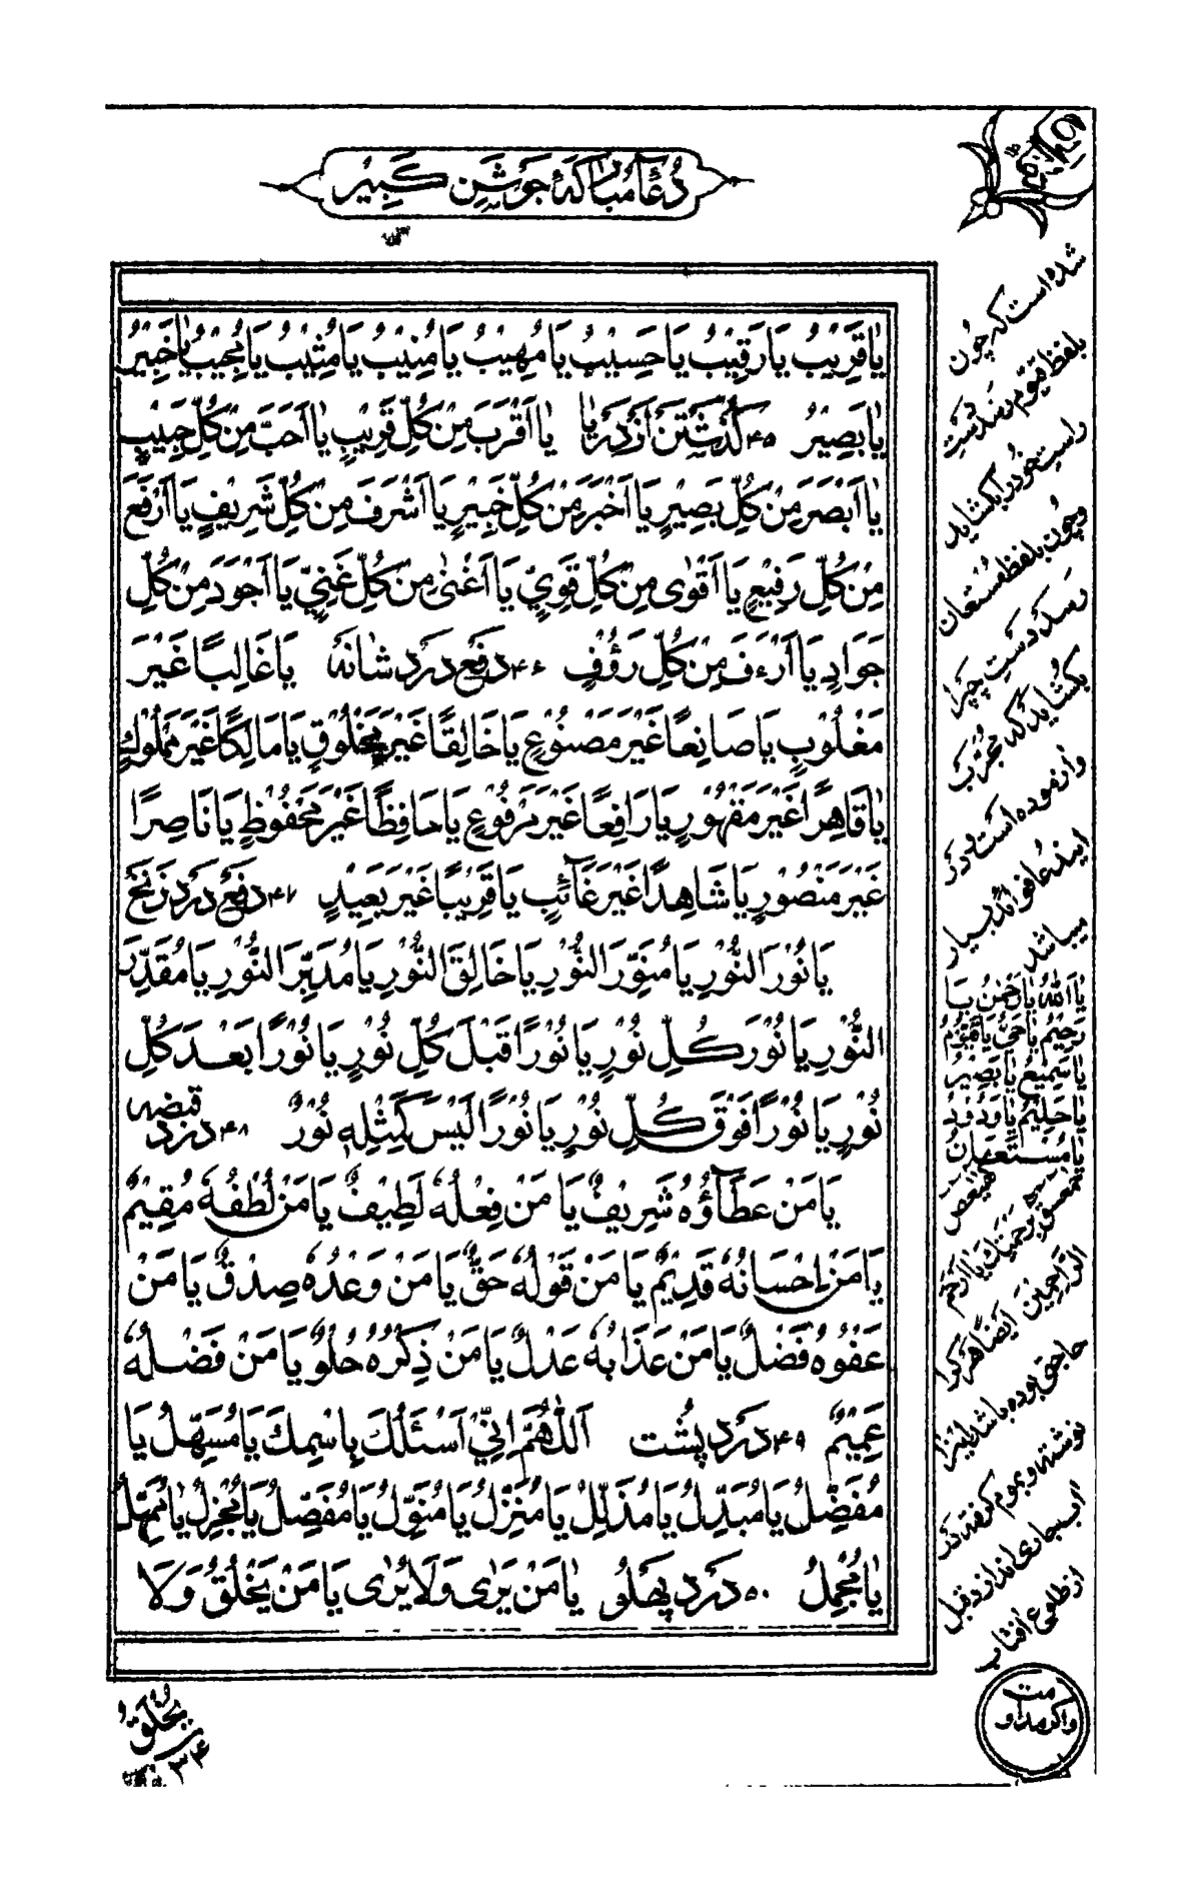 دُعَاءِ مُبَارَكَهٔ جَوْشَنِ كَبِيرْ
يَا قَرِيْبُ يَا رَقِيْبُ يَا حَسِيْبُ يَا مُهِيْبُ يَا مُنِيْبُ يَا مُثِيْبُ يَا مُجِيْبُ يَا خَبِيْرُ
يَا بَصِيْرُ ۴۵ گُذَشْتَنْ اَزْ دَرْيَا يَا اَقْرَبَ مِنْ كُلِّ قَرِيْبٍ يَا اَحَبَّ مِنْ كُلِّ حَبِيْبٍ
يَا اَبْصَرَ مِنْ كُلِّ بَصِيْرٍ يَا اَخْبَرَ مِنْ كُلِّ خَبِيْرٍ يَا اَشْرَفَ مِنْ كُلِّ شَرِيْفٍ يَا اَرْفَعَ
مِنْ كُلِّ رَفِيْعٍ يَا اَقْوٰى مِنْ كُلِّ قَوِيٍّ يَا اَغْنٰى مِنْ كُلِّ غَنِيٍّ يَا اَجْوَدَ مِنْ كُلِّ
جَوَادٍ يَا اَرْءَفَ مِنْ كُلِّ رَؤُفٍ ۴۶ دَفْعِ دَرْدِ شَانَهْ يَا غَالِبًا غَيْرَ
مَغْلُوْبٍ يَا صَانِعًا غَيْرَ مَصْنُوْعٍ يَا خَالِقًا غَيْرَ مَخْلُوْقٍ يَا مَالِكًا غَيْرَ مَمْلُوْكٍ
يَا قَاهِرًا غَيْرَ مَقْهُوْرٍ يَا رَافِعًا غَيْرَ مَرْفُوْعٍ يَا حَافِظًا غَيْرَ مَحْفُوْظٍ يَا نَاصِرًا
غَيْرَ مَنْصُوْرٍ يَا شَاهِدًا غَيْرَ غَآئِبٍ يَا قَرِيْبًا غَيْرَ بَعِيْدٍ ۴۷ دَفْعِ دَرْدِ زَنَخْ
يَا نُوْرَ النُّوْرِ يَا مُنَوِّرَ النُّوْرِ يَا خَالِقَ النُّوْرِ يَا مُدَبِّرَ النُّوْرِ يَا مُقَدِّرَ
النُّوْرِ يَا نُوْرَ كُلِّ نُوْرٍ يَا نُوْرًا قَبْلَ كُلِّ نُوْرٍ يَا نُوْرًا بَعْدَ كُلِّ
نُوْرٍ يَا نُوْرًا فَوْقَ كُلِّ نُوْرٍ يَا نُوْرًا لَيْسَ كَمِثْلِهٖ نُوْرٌ ۴۸ دَرْدِ قبضه
يَا مَنْ عَطَآؤُهُ شَرِيْفٌ يَا مَنْ فِعْلُهُ لَطِيْفٌ يَا مَنْ لُطْفُهُ مُقِيْمٌ
يَا مَنْ اِحْسَانُهُ قَدِيْمٌ يَا مَنْ قَوْلُهُ حَقٌّ يَا مَنْ وَعْدُهُ صِدْقٌ يَا مَنْ
عَفْوُهُ فَضْلٌ يَا مَنْ عَذَابُهُ عَدْلٌ يَا مَنْ ذِكْرُهُ حُلْوٌ يَا مَنْ فَضْلُهُ
عَمِيْمٌ ۴۹ دَرْدِ پُشْت اَللّٰهُمَّ اِنِّيْ اَسْئَلُكَ بِاسْمِكَ يَا مُسَهِّلُ يَا
مُفَضِّلُ يَا مُبَدِّلُ يَا مُذَلِّلُ يَا مُنَزِّلُ يَا مُنَوِّلُ يَا مُفَصِّلُ يَا مُجْزِلُ يَا مُمْهِلُ
يَا مُجْمِلُ ۵۰ دَرْدِ پَهْلُو يَا مَنْ يَرٰى وَلَا يُرٰى يَا مَنْ يَخْلُقُ وَلَا
شده است كه چون
بلفظ قیّوم رسد دست
راست خود را بكشايد
و چون بلفظ مستعان
رسد دست چپ را
بكشايد كه مجرب
و از موده است و در
ايندعا فوائد بسيار
ميباشد
يَا اَللّٰهُ يَا رَحْمٰنُ يَا
رَحِيْمُ يَا حَيُّ يَا قَيُّوْمُ
يَا سَمِيْعُ يَا بَصِيْرُ
يَا حَلِيْمُ يَا وَدُوْدُ
يَا مُسْتَعَانُ
كهيعص
حمعسق برحمتك يا ارحم
الراحمين ايضا هر كرا
حاجتى بوده باشد اينرا
نوشته و بموم گرفته در
آب جارى اندازد قبل
از طلوع افتاب
واكر مداومت
يُخْلَقُ
۳۴